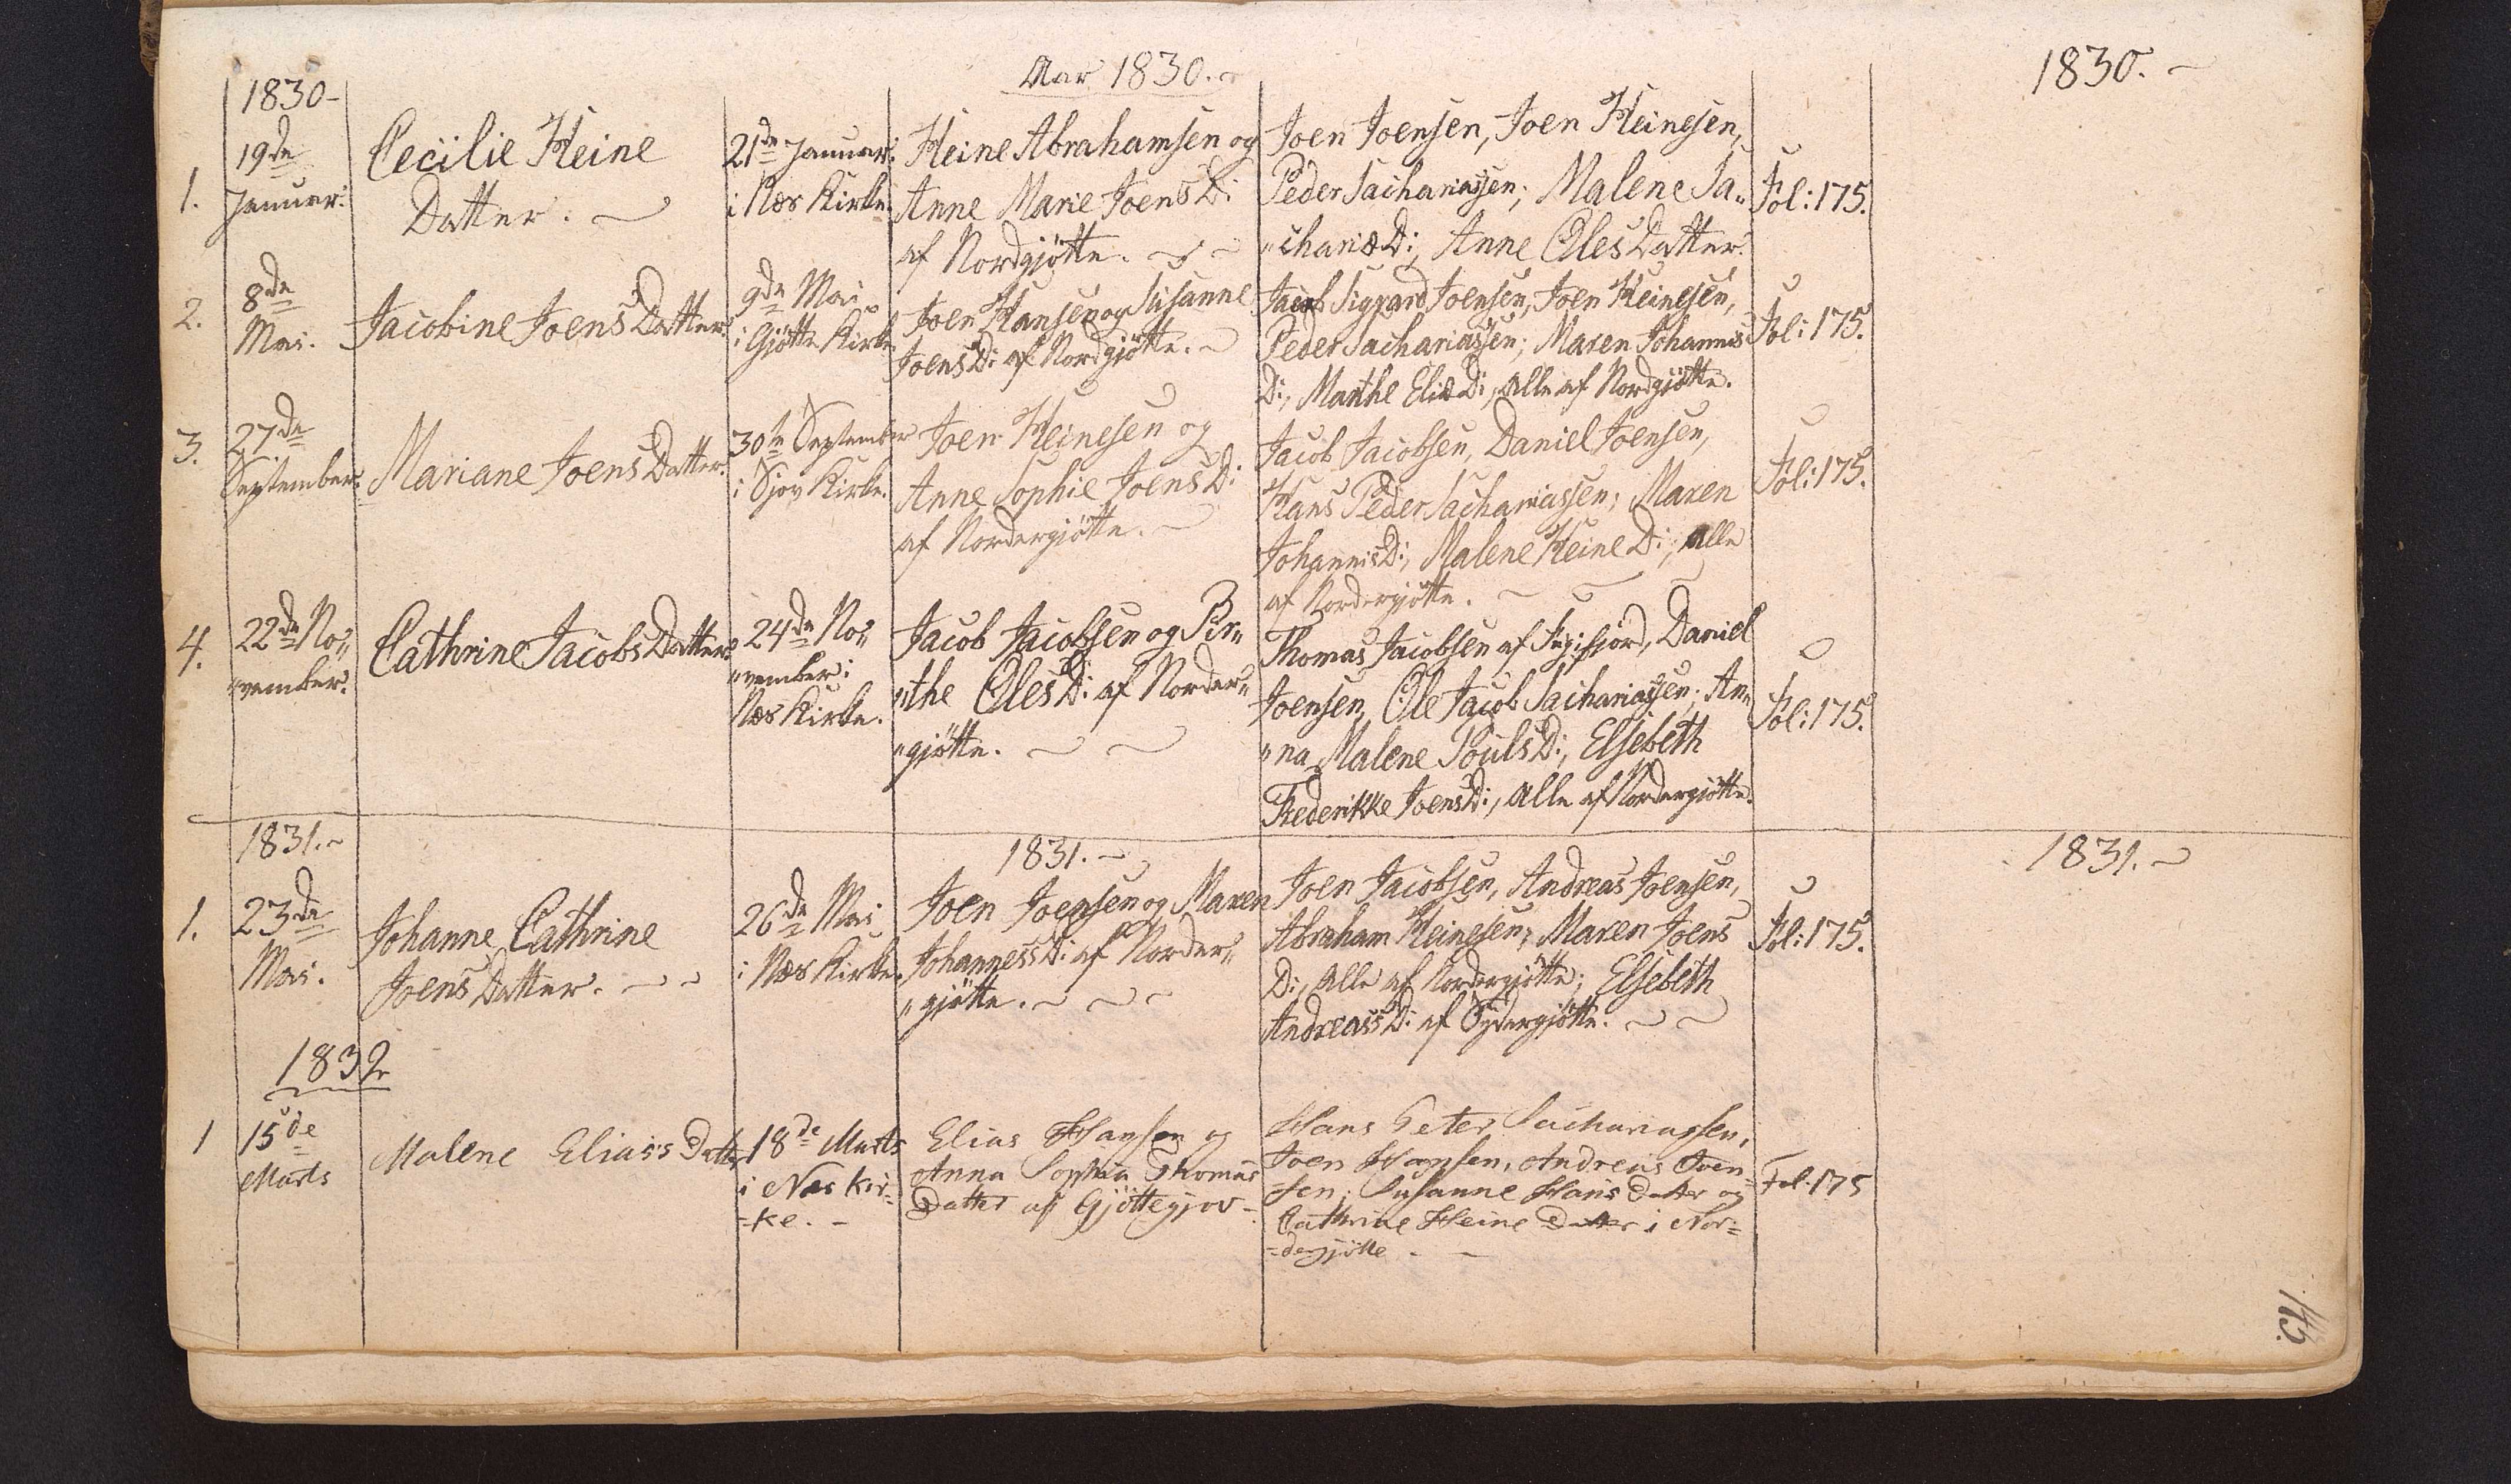 Aar 1830.
1830.
1830
1.
19de
Januar.
Cecilie Heine
Datter.
21de Januar.
i Næs Kirke.
Heine Abrahamsen og
Anne Marie Joens D:
af Nordgjøtte.
Joen Joensen, Joen Heinesen,
Peder Sachariassen; Malene Sa„
„chariæ D:, Anne Oles Datter.
Fol: 175.
2.
8de
Mai.
Jacobine Joens Datter
9de Mai
i Gjøtte Kirke
Joen Hansen og Susanne
Joens D: af Nordgjøtte.
Jacob Sigvard Joensen, Joen Heinesen,
Peder Sachariassen; Maren Johannis
D:, Marthe Eliæ D:, Alle af Nordgjøtte.
Fol: 175.
3.
27de
September.
Mariane Joens Datter.
30te September
i Sjov Kirke.
Joen Heinesen og
Anne Sophie Joens D:
af Nordergjøtte.
Jacob Jacobsen, Daniel Joensen,
Hans Peder Sachariassen; Maren
Johannis D:, Malene Heine D:, Alle
af Nordergjøtte.
Fol: 175.
4.
22de No„
„vember.
Cathrine Jacobs Datter.
24de No„
„vember i
Næs Kirke.
Jacob Jacobsen og Bir„
„the Oles D: af Norder„
„gjøtte.
Thomas Jacobsen af Fugifjord, Daniel
Joensen, Ole Jacob Sachariassen; An„
„na Malene Pouls D:, Elsebeth
Frederikke Joens D:, Alle af Nordergjøtte.
Fol: 175.
1831.
1831.
1831.
1.
23de
Mai.
Johanne Cathrine
Joens Datter.
26de Mai
i Næs Kirke.
Joen Joensen og Maren
Johanness D: af Norder„
„gjøtte.
Joen Jacobsen, Andreas Joensen,
Abraham Heinesen; Maren Joens
D:, Alle af Nordergjøtte; Elsebeth
Andreass D: af Sydergjøtte.
Fol: 175.
1832
1
15de
Marts
Malene Elias's Datter
18de Marts
i Næs Kir=
=ke.
Elias Hansen og
Anna Sophia Thomas
Datter af Gjøttegjov
Hans Peter Sachariassen,
Joen Hansen, Andreas Joen=
sen; Susanne Hans Datter og
Cathrine Heine Datter i Nor=
=dergjøtte
Fol. 175
145.